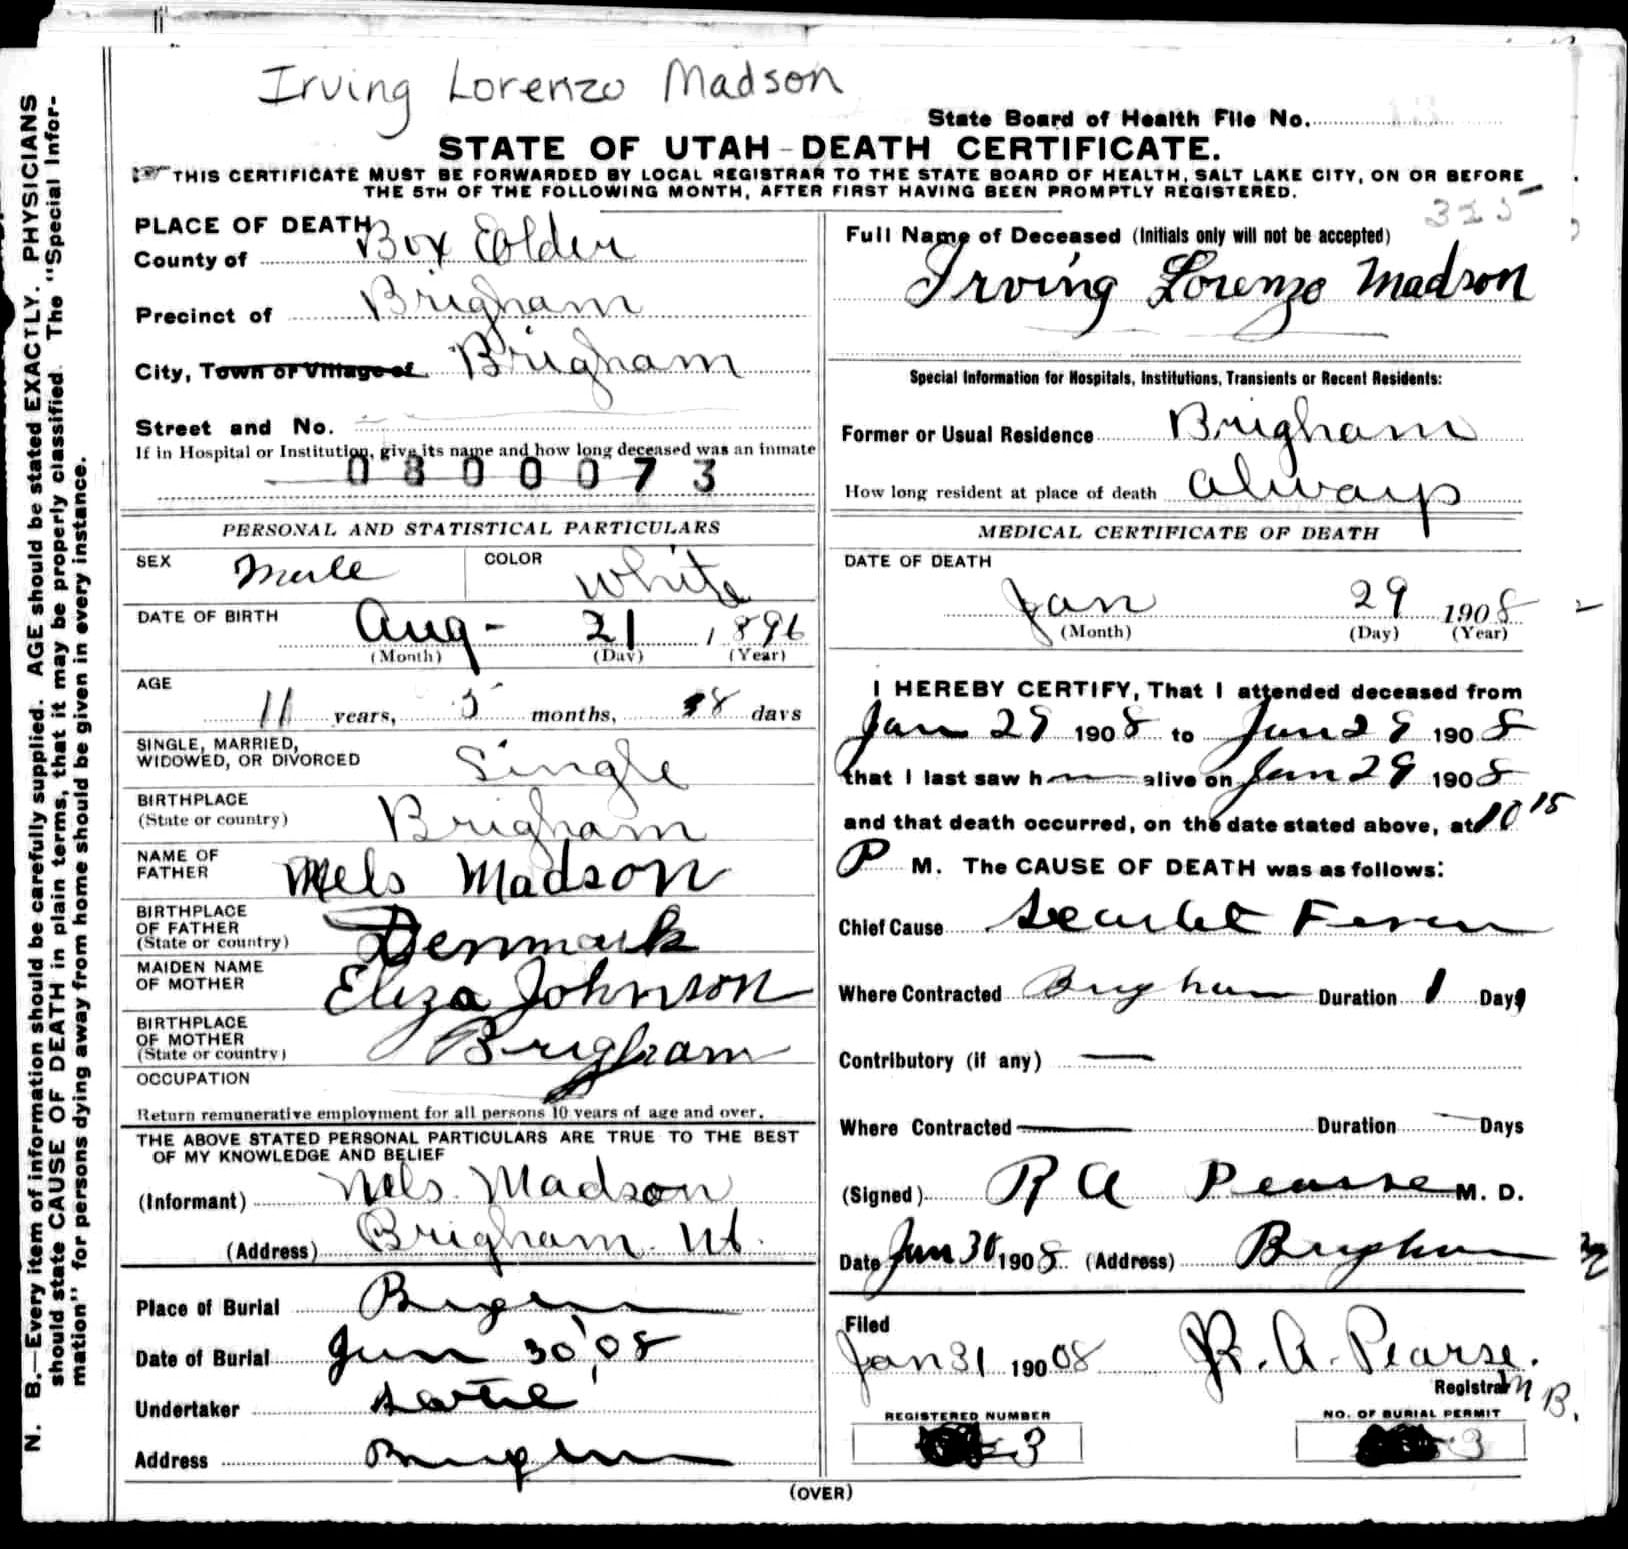 Irving Lorenzo Madson
State Board of Health File No.
STATE OF UTAH - DEATH CERTIFICATE.
THIS CERTIFICATE MUST BE FORWARDED BY LOCAL REGISTRAR TO THE STATE BOARD OF HEALTH, SALT LAKE CITY, ON OR BEFORE
THE 5TH OF THE FOLLOWING MONTH, AFTER FIRST HAVING BEEN PROMPTLY REGISTERED.
N. B.—Every item of information should be carefully supplied. AGE should be stated EXACTLY. PHYSICIANS
should state CAUSE OF DEATH in plain terms, that it may be properly classified. The "Special Infor-
mation" for persons dying away from home should be given in every instance.
PLACE OF DEATH
County of Box Elder
Precinct of Brigham
City, Town or Village of Brigham
Street and No.
If in Hospital or Institution, give its name and how long deceased was an inmate
0800073
PERSONAL AND STATISTICAL PARTICULARS
SEX Male COLOR White
DATE OF BIRTH Aug - 21 1896
(Month) (Day) (Year)
AGE
11 years, 5 months, 8 days
SINGLE, MARRIED,
WIDOWED, OR DIVORCED Single
BIRTHPLACE
(State or country) Brigham
NAME OF
FATHER Nels Madson
BIRTHPLACE
OF FATHER
(State or country) Denmark
MAIDEN NAME
OF MOTHER Eliza Johnson
BIRTHPLACE
OF MOTHER
(State or country) Brigham
OCCUPATION
Return remunerative employment for all persons 10 years of age and over.
THE ABOVE STATED PERSONAL PARTICULARS ARE TRUE TO THE BEST
OF MY KNOWLEDGE AND BELIEF
(Informant) Nels. Madson
(Address) Brigham. Ut.
Place of Burial Brigham
Date of Burial Jan 30 '08
Undertaker
Address Brigham
315
Full Name of Deceased (Initials only will not be accepted)
Irving Lorenzo Madson
Special Information for Hospitals, Institutions, Transients or Recent Residents:
Former or Usual Residence Brigham
How long resident at place of death always
MEDICAL CERTIFICATE OF DEATH
DATE OF DEATH
Jan 29 1908
(Month) (Day) (Year)
I HEREBY CERTIFY, That I attended deceased from
Jan 29 1908 to Jan 29 1908
that I last saw h alive on Jan 29 1908
and that death occurred, on the date stated above, at 10 15
P M. The CAUSE OF DEATH was as follows:
Chief Cause Scarlet Fever
Where Contracted Brigham Duration 1 Days
Contributory (if any)
Where Contracted Duration Days
(Signed) R A Pearse M. D.
Date Jan 30 1908 (Address) Brigham
Filed
Jan 31 1908 R. A. Pearse.
Registrar
M B.
REGISTERED NUMBER
3
NO. OF BURIAL PERMIT
3
(OVER)